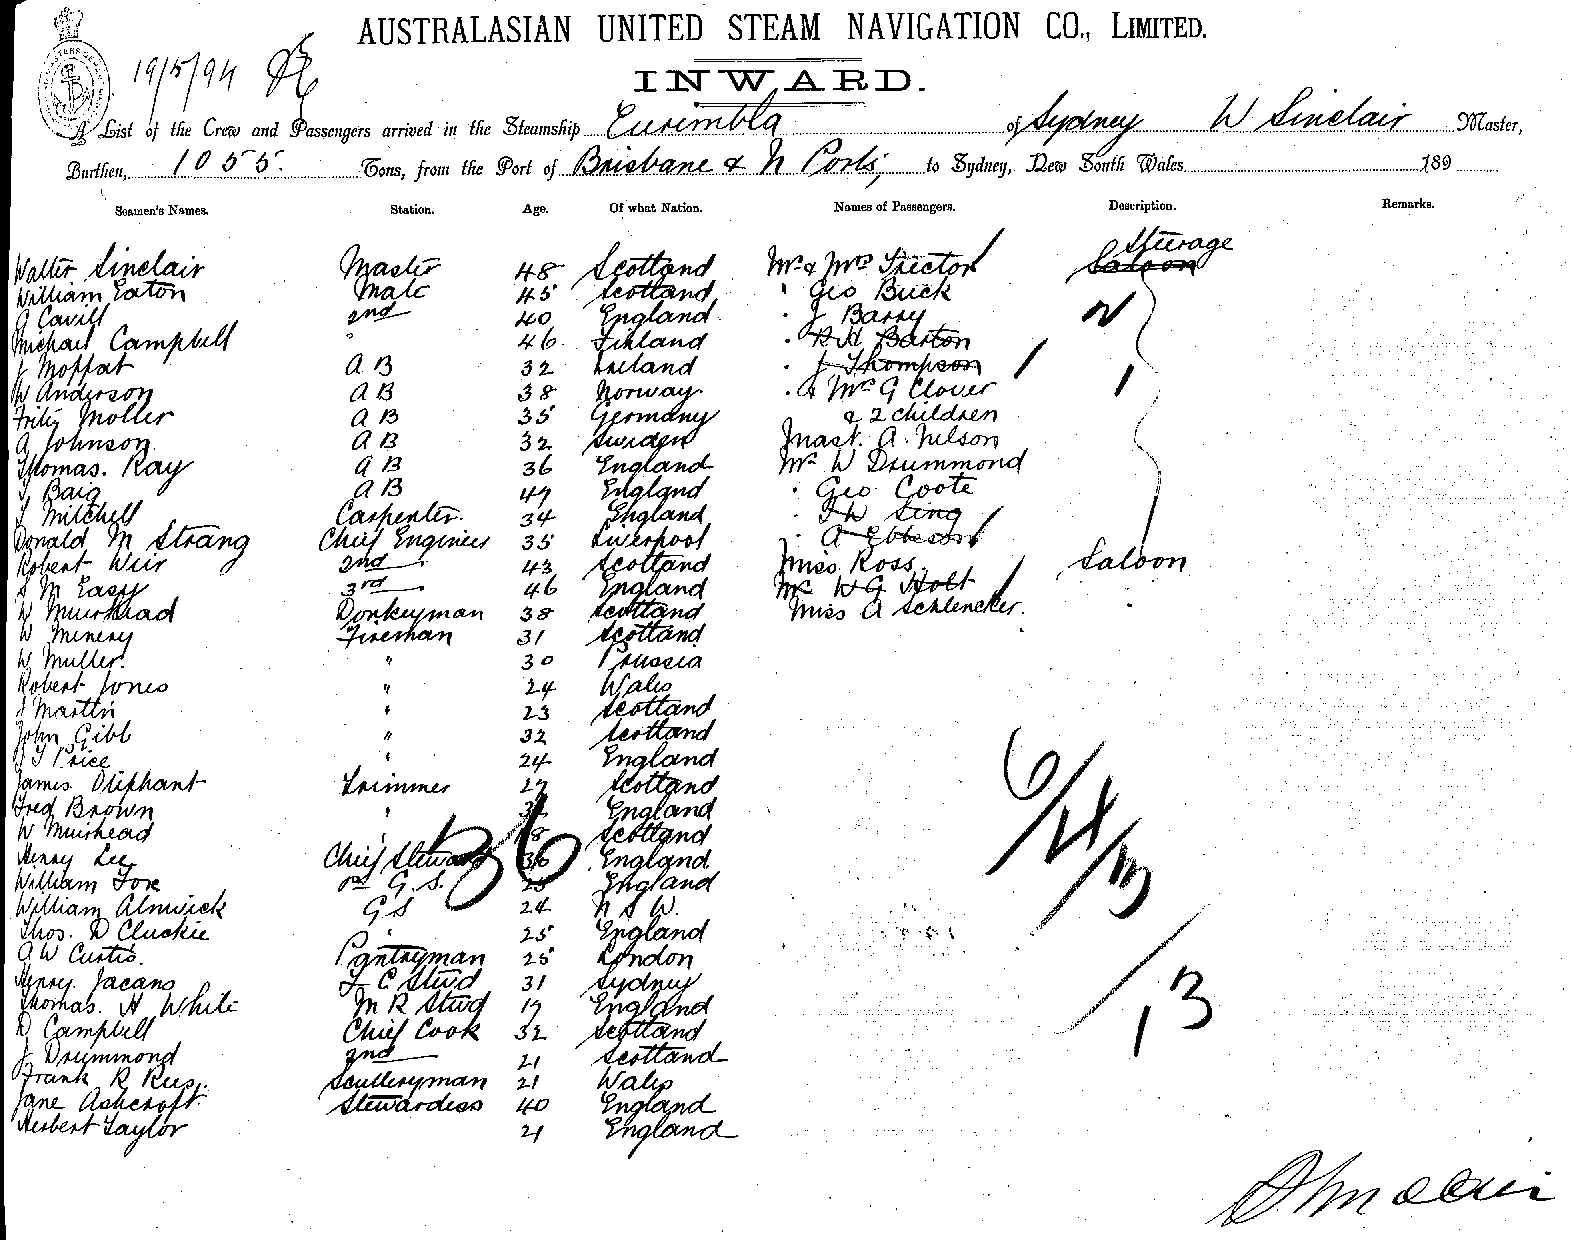 AUSTRALASIAN UNITED STEAM NAVIGATION CO., LIMITED.
19/5/94
INWARD.
A List of the Crew and Passengers arrived in the Steamship Eurimbla of Sydney W Sinclair Master,
Burthen, 1055. Tons, from the Port of Brisbane & N Ports, to Sydney, New South Wales 189
Seamen's Names. Station. Age. Of what Nation. Names of Passengers. Description. Remarks.
Steerage
Walter Sinclair Master 48 Scotland Mr & Mrs Trector Saloon
William Eaton Mate 45 Scotland " Geo Buck
J Cavill 2nd 40 England " J Barry
Michael Campbell " 46 Finland " R H Barton
J Moffat A B 32 Ireland " J Thompson
W Anderson A B 38 Norway " & Mrs G Clover
Fritz Moller A B 35 Germany & 2 children
A Johnson A B 32 Sweden Mast. A. Nilson
Thomas. Ray A B 36 England Mr W Drummond
Baig A B 47 England " Geo Coote
Mitchell Carpenter. 34 England " Sing
Donald M Strang Chief Engineer 35 Liverpool " A
Robert Weir 2nd 43 Scotland Miss Ross. Saloon
S M Easy 3rd 46 England Mr W G Holt
W Muirhead Donkeyman 38 Scotland Miss A Schlencker.
W Minery Fireman 31 Scotland
W Muller. " 30 Prussia
Robert Jones " 24 Wales
J Martin " 23 Scotland
John Gibb " 32 Scotland
Price " 24 England
James Oliphant Trimmer 27 Scotland
Fred Brown " England
W Muirhead 18 Scotland
36
Henry Lee Chief Steward 36 England
William Fox G.S. 25 England
William Alnwick G S 24 N S W.
Thos. D Cluckie " 25 England
A W Curtis. Pantryman 25 London
Henry. Jacano F C Stwd 31 Sydney
Thomas. H White M R Stwd 17 England
D Campbell Chief Cook 32 Scotland
J Drummond 2nd 21 Scotland
Frank R Rees. Sculleryman 21 Wales
Jane Ashcroft. Stewardess 40 England
Herbert Taylor 21 England
13